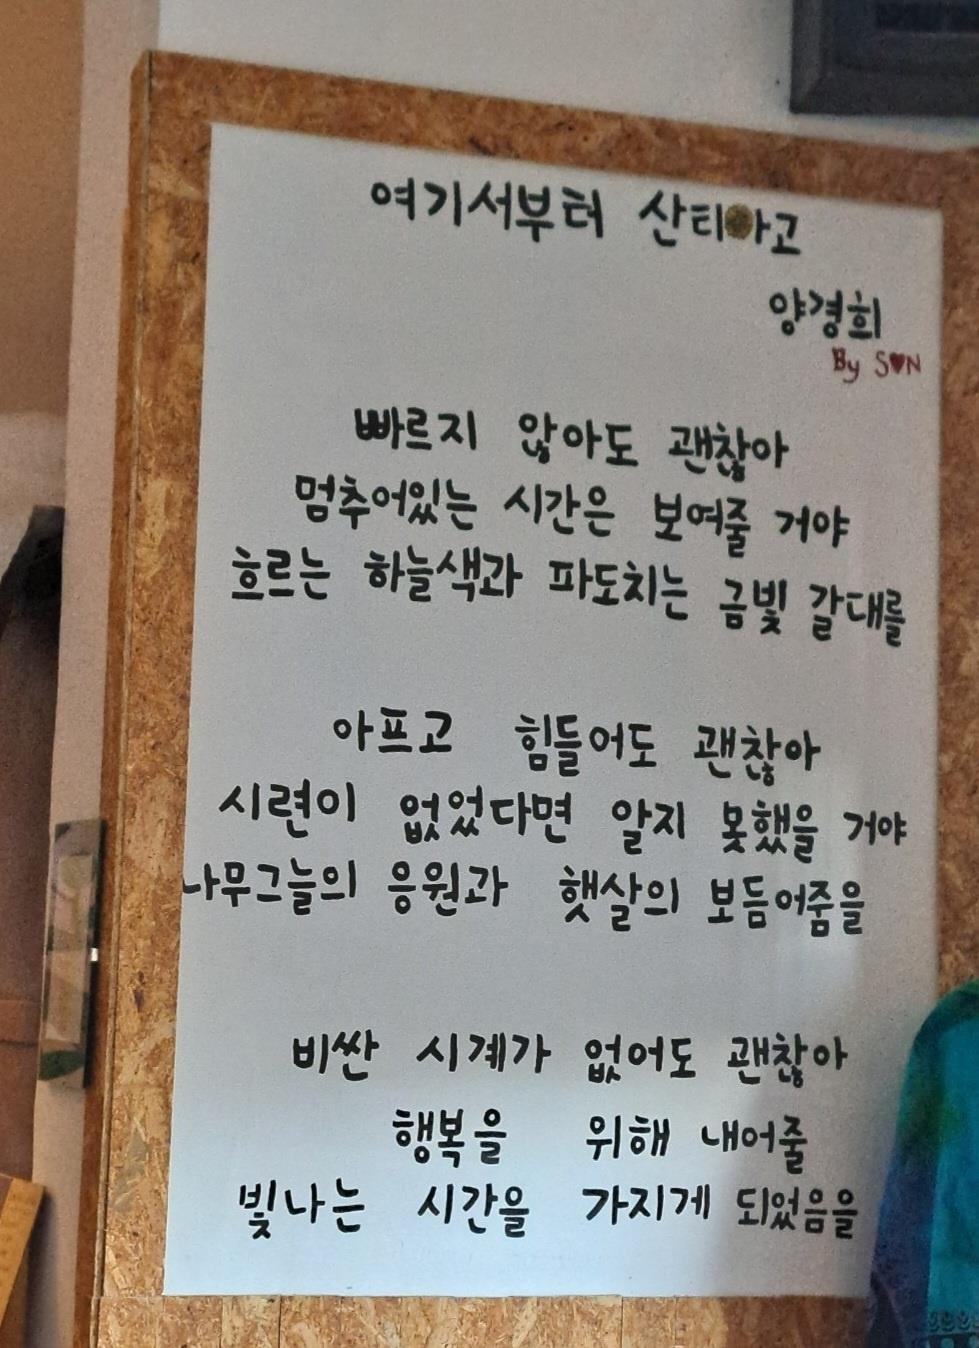 여기서부터 산티아고
양경희
By S♥N
빠르지 않아도 괜찮아
멈추어있는 시간은 보여줄 거야
흐르는 하늘색과 파도치는 금빛 갈대를
아프고 힘들어도 괜찮아
시련이 없었다면 알지 못했을 거야
나무그늘의 응원과 햇살의 보듬어줌을
비싼 시계가 없어도 괜찮아
행복을 위해 내어줄
빛나는 시간을 가지게 되었음을